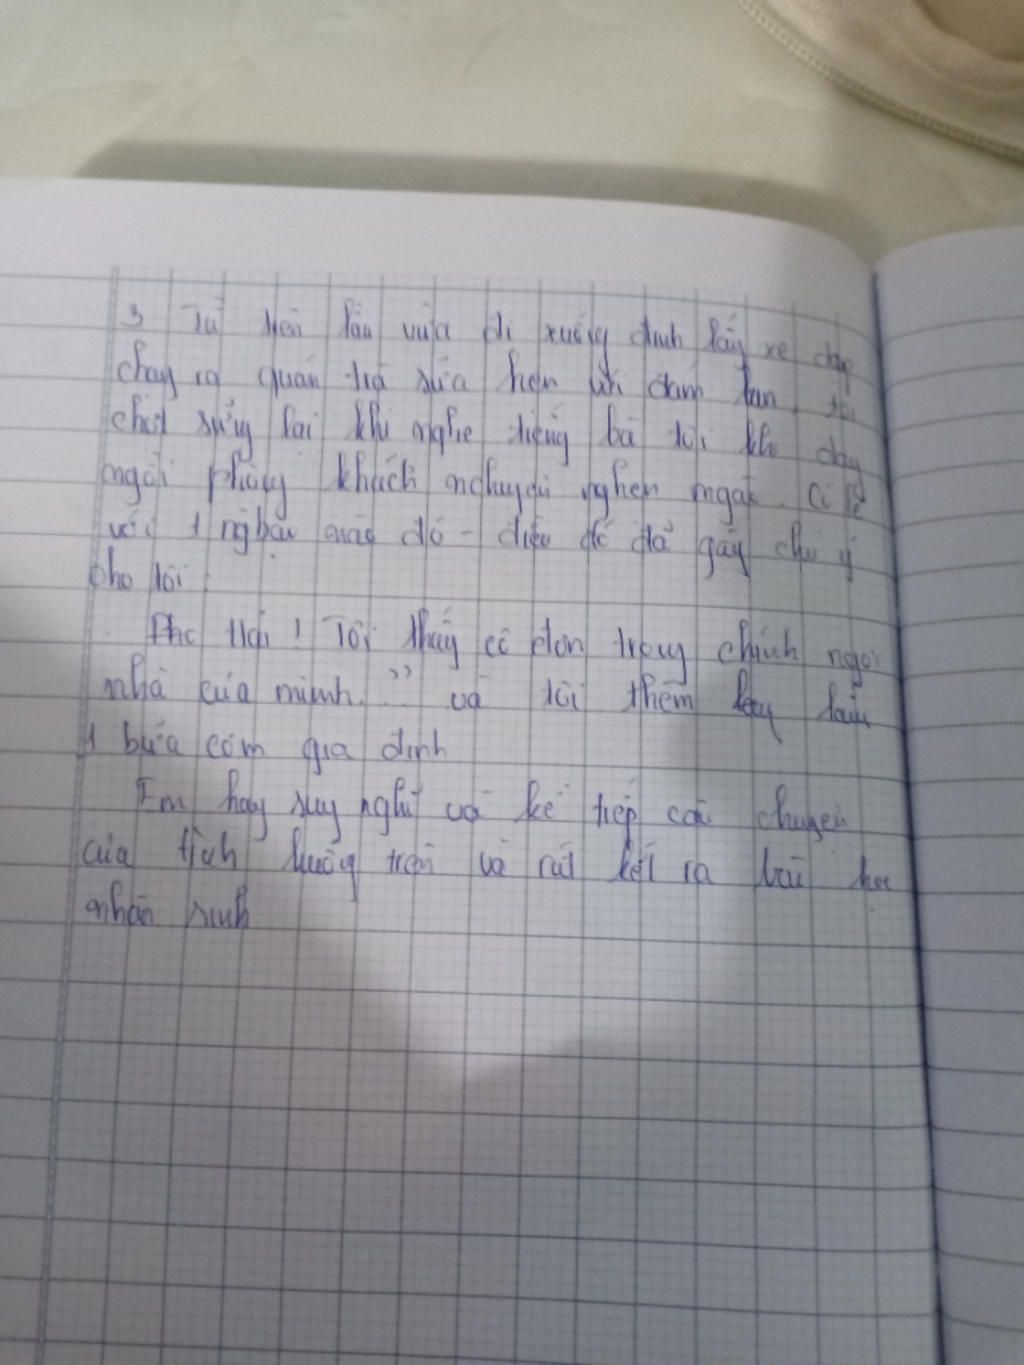 3 Từ trên lầu vừa đi xuống định lấy xe đạp
chạy ra quán trà sữa hẹn với đám bạn, tôi
chợt sững lại khi nghe tiếng bà tôi
ngồi phòng khách nghẹn ngạt. Có lẽ
với 1 người nào đó - điều đó đã gây chú ý
cho tôi.
Tôi thấy cô đơn trong chính ngôi
nhà của mình.” và tôi thèm lắm
1 bữa cơm gia đình
Em hãy suy nghĩ và kể tiếp câu chuyện
của tình huống trên và rút kết ra bài học
nhân sinh